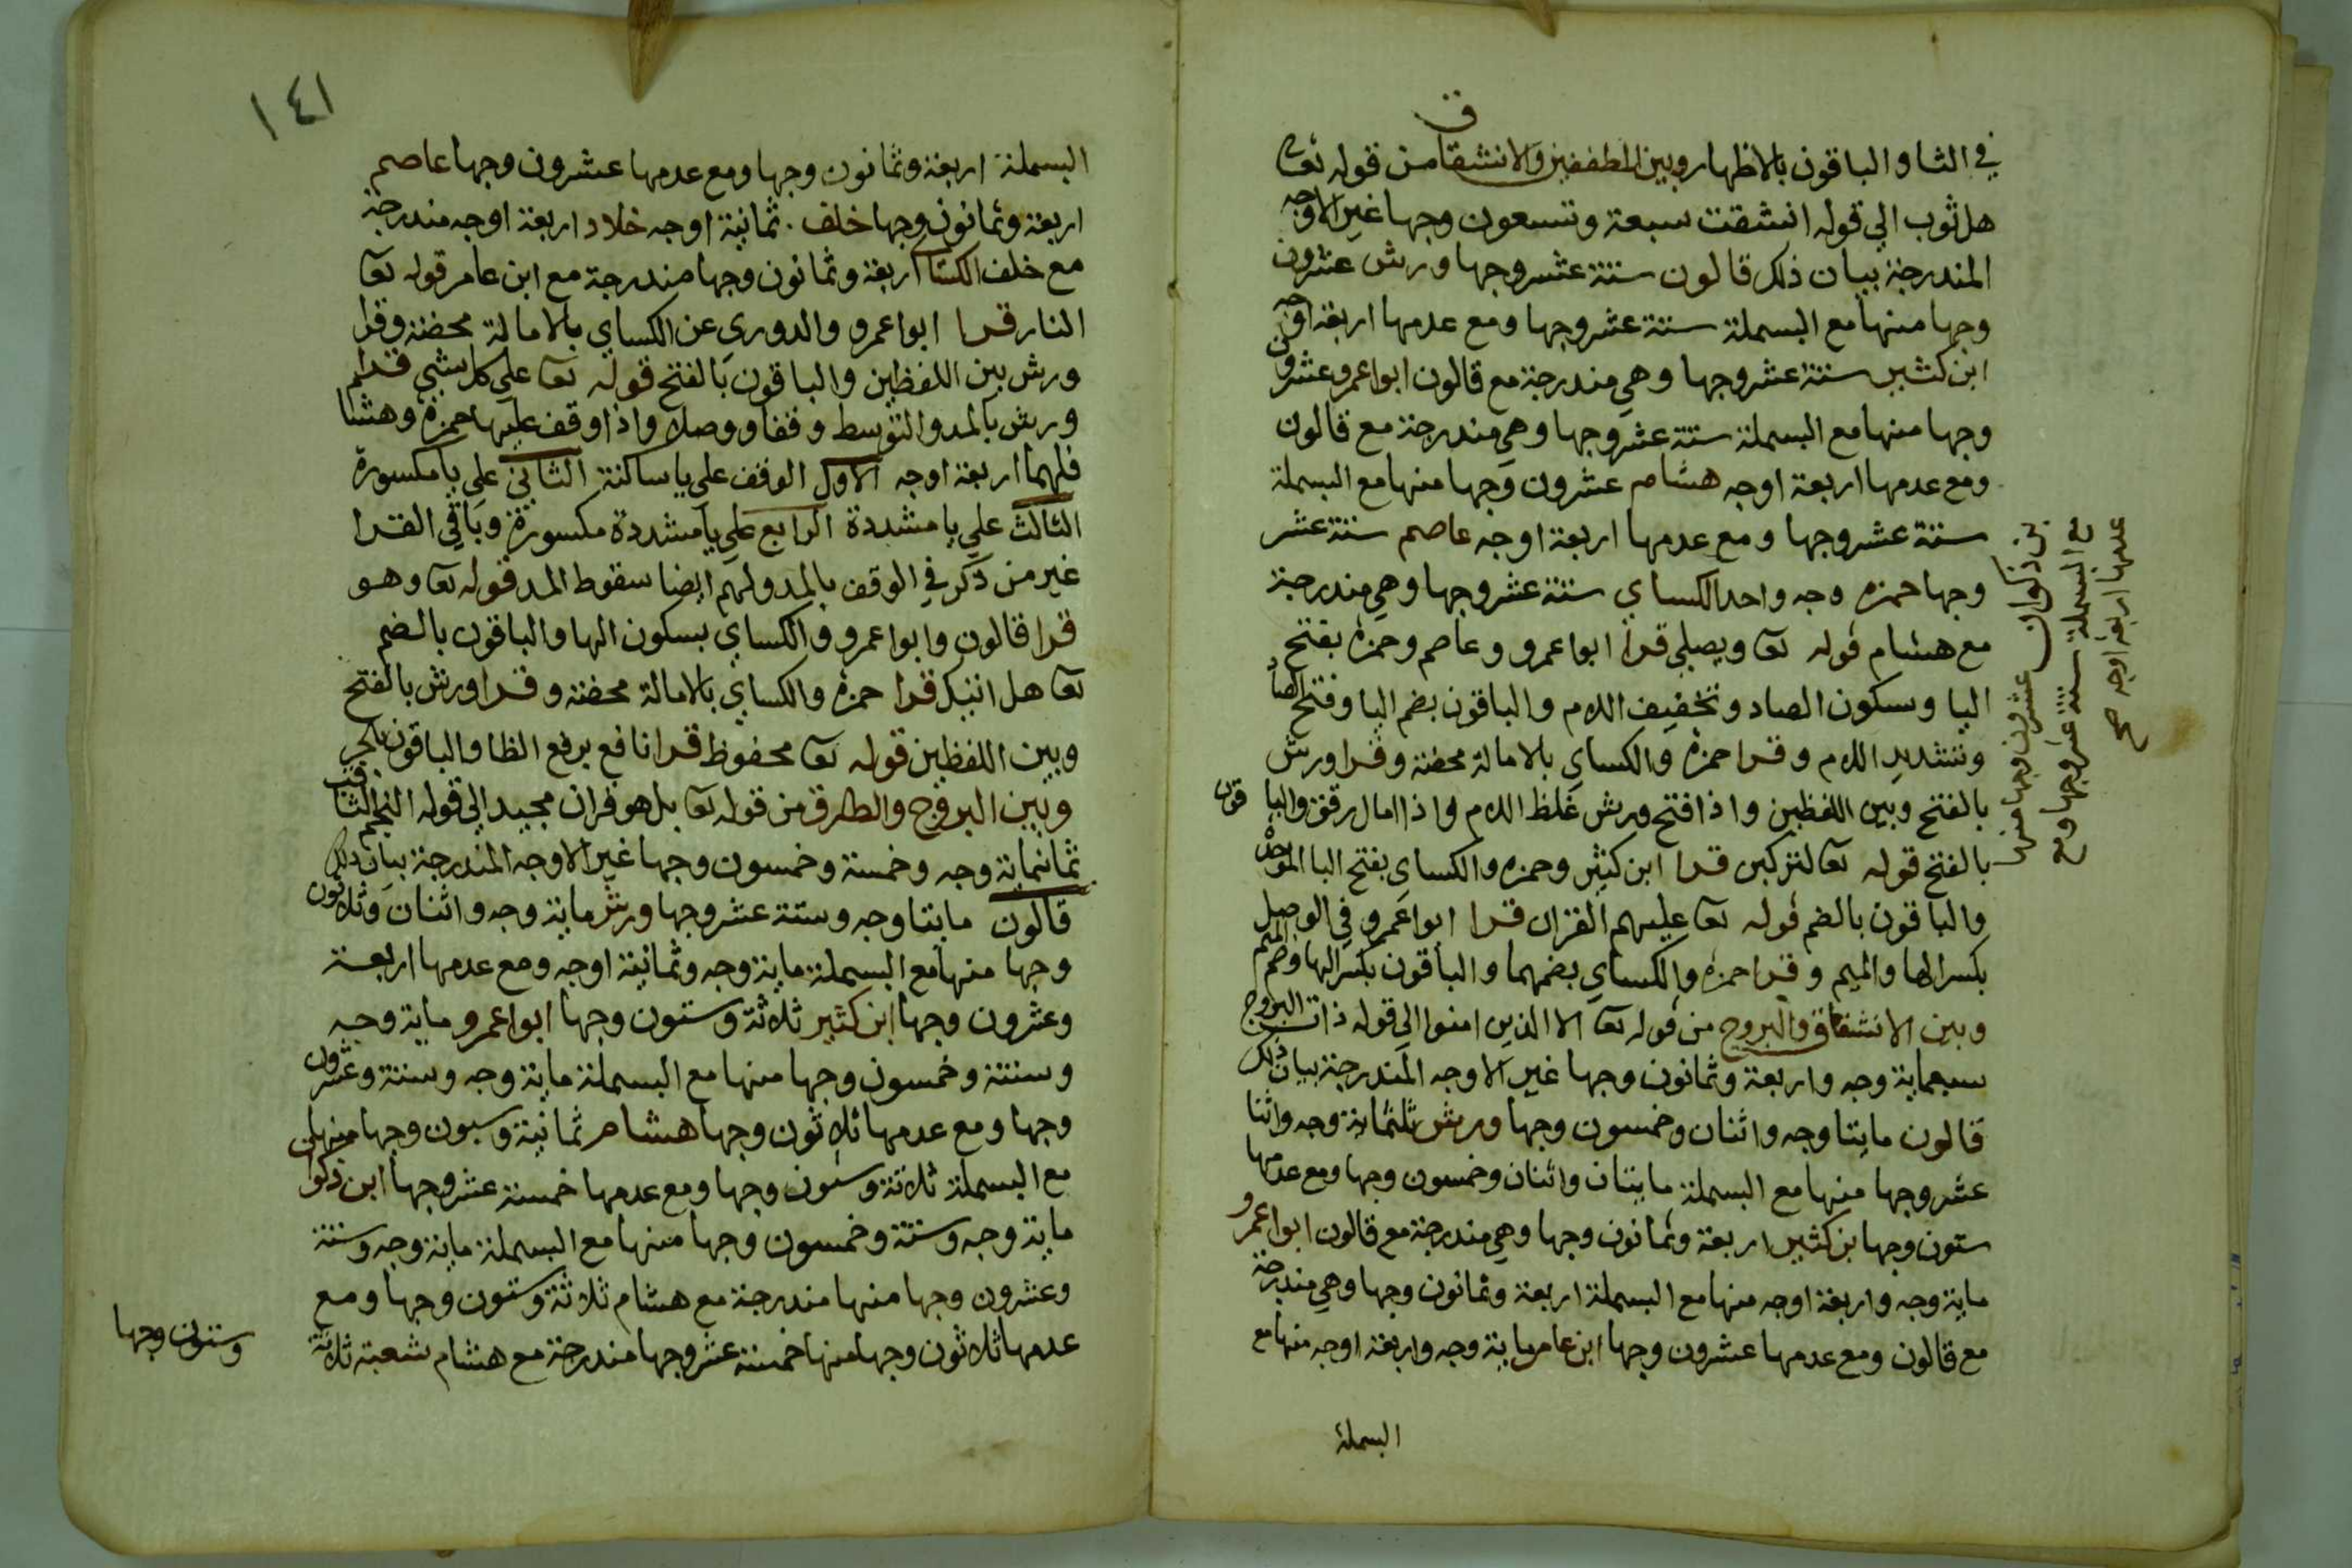 في الثا والباقون بالاظهار وبين المطففين والانشقاق من قوله تعالى
هل ثوب الي قوله انشقت سبعة وتسعون وجها غير الاوجه
المندرجة بيان ذلك قالون ستة عشر وجها ورش عشرون
وجها منها مع البسملة ستة عشر وجها ومع عدمها اربعة اوجه
ابن كثير ستة عشر وجها وهي مندرجة مع قالون ابوا عمرو عشرون
وجها منها مع البسملة ستة عشر وجها وهي مندرجة مع قالون
ومع عدمها اربعة اوجه هشام عشرون وجها منها مع البسملة
ستة عشر وجها ومع عدمها اربعة اوجه عاصم ستة عشر
وجها حمزه وجه واحد الكساي ستة عشر وجها وهي مندرجة
مع هشام قوله تعا ويصلي قرا ابوا عمرو وعاصم وحمزه بفتح
اليا وسكون الصاد وتخفيف اللام والباقون بضم اليا وفتح الصاد
وتشديد اللام وقرا حمزه والكساي بالامالة محضة وقرا ورش
بالفتح وبين اللفظين واذا فتح ورش غلظ اللام واذا امال رقق والباقون
بالفتح قوله تعا لتركبن قرا ابن كثير وحمزه والكساي بفتح البا الموحدة
والباقون بالضم قوله تعا عليهم القران قرا ابوا عمرو في الوصل
بكسر الها والميم وقرا حمزه والكساي بضمهما والباقون بكسر الها وضم الميم
وبين الانشقاق والبروج من قوله تعا الا الذين امنوا الي قوله ذات البروج
سبعماية وجه واربعة وثمانون وجها غير الاوجه المندرجة بيان ذلك
قالون مايتا وجه واثنان وخمسون وجها ورش ثلثماية وجه واثنا
عشر وجها منها مع البسملة مايتان واثنان وخمسون وجها ومع عدمها
ستون وجها بن كثير اربعة وثمانون وجها وهي مندرجة مع قالون ابوا عمرو
ماية وجه واربعة اوجه منها مع البسملة اربعة وثمانون وجها وهي مندرجة
مع قالون ومع عدمها عشرون وجها ابن عامر ماية وجه واربعة اوجه منها مع
البسملة
بن ذكوان عشرون وجها منها
مع البسملة ستة عشر وجها ومع
عدمها اربعة اوجه صح
١٤١
البسملة اربعة وثمانون وجها ومع عدمها عشرون وجها عاصم
اربعة وثمانون وجها خلف ثمانية اوجه خلاد اربعة اوجه مندرجة
مع خلف الكساي اربعة وثمانون وجها مندرجة مع ابن عامر قوله تعا
النار قرا ابوا عمرو والدوري عن الكساي بالامالة محضة وقرا
ورش بين اللفظين والباقون بالفتح قوله تعا علي كل شي قرا
ورش بالمد والتوسط وقفا ووصلا واذا وقف عليها حمزه وهشام
فلهما اربعة اوجه الاول الوقف علي يا ساكنة الثاني علي يا مكسورة
الثالث علي يا مشددة الرابع علي يا مشددة مكسورة وباقي القرا
غير من ذكر في الوقف بالمد ولهم ايضا سقوط المد قوله تعا وهو
قرا قالون وابوا عمرو والكساي بسكون الها والباقون بالضم
تعا هل اتيك قرا حمزه والكساي بالامالة محضة وقرا ورش بالفتح
وبين اللفظين قوله تعا محفوظ قرا نافع برفع الظا والباقون بالجر
وبين البروج والطارق من قوله تعا بل هو قران مجيد الي قوله النجم الثاقب
ثمانماية وجه وخمسة وخمسون وجها غير الاوجه المندرجة بيان ذلك
قالون مايتا وجه وستة عشر وجها ورش ماية وجه واثنان وثلاثون
وجها منها مع البسملة ماية وجه وثمانية اوجه ومع عدمها اربعة
وعشرون وجها ابن كثير ثلاثة وستون وجها ابوا عمرو ماية وجه
وستة وخمسون وجها منها مع البسملة ماية وجه وستة وعشرون
وجها ومع عدمها ثلاثون وجها هشام ثمانية وسبعون وجها منها
مع البسملة ثلاثة وستون وجها ومع عدمها خمسة عشر وجها ابن ذكوان
ماية وجه وستة وخمسون وجها منها مع البسملة ماية وجه وستة
وعشرون وجها منها مندرجة مع هشام ثلاثة وستون وجها ومع
عدمها ثلاثون وجها منها خمسة عشر وجها مندرجة مع هشام شعبة ثلاثة
وستون وجها